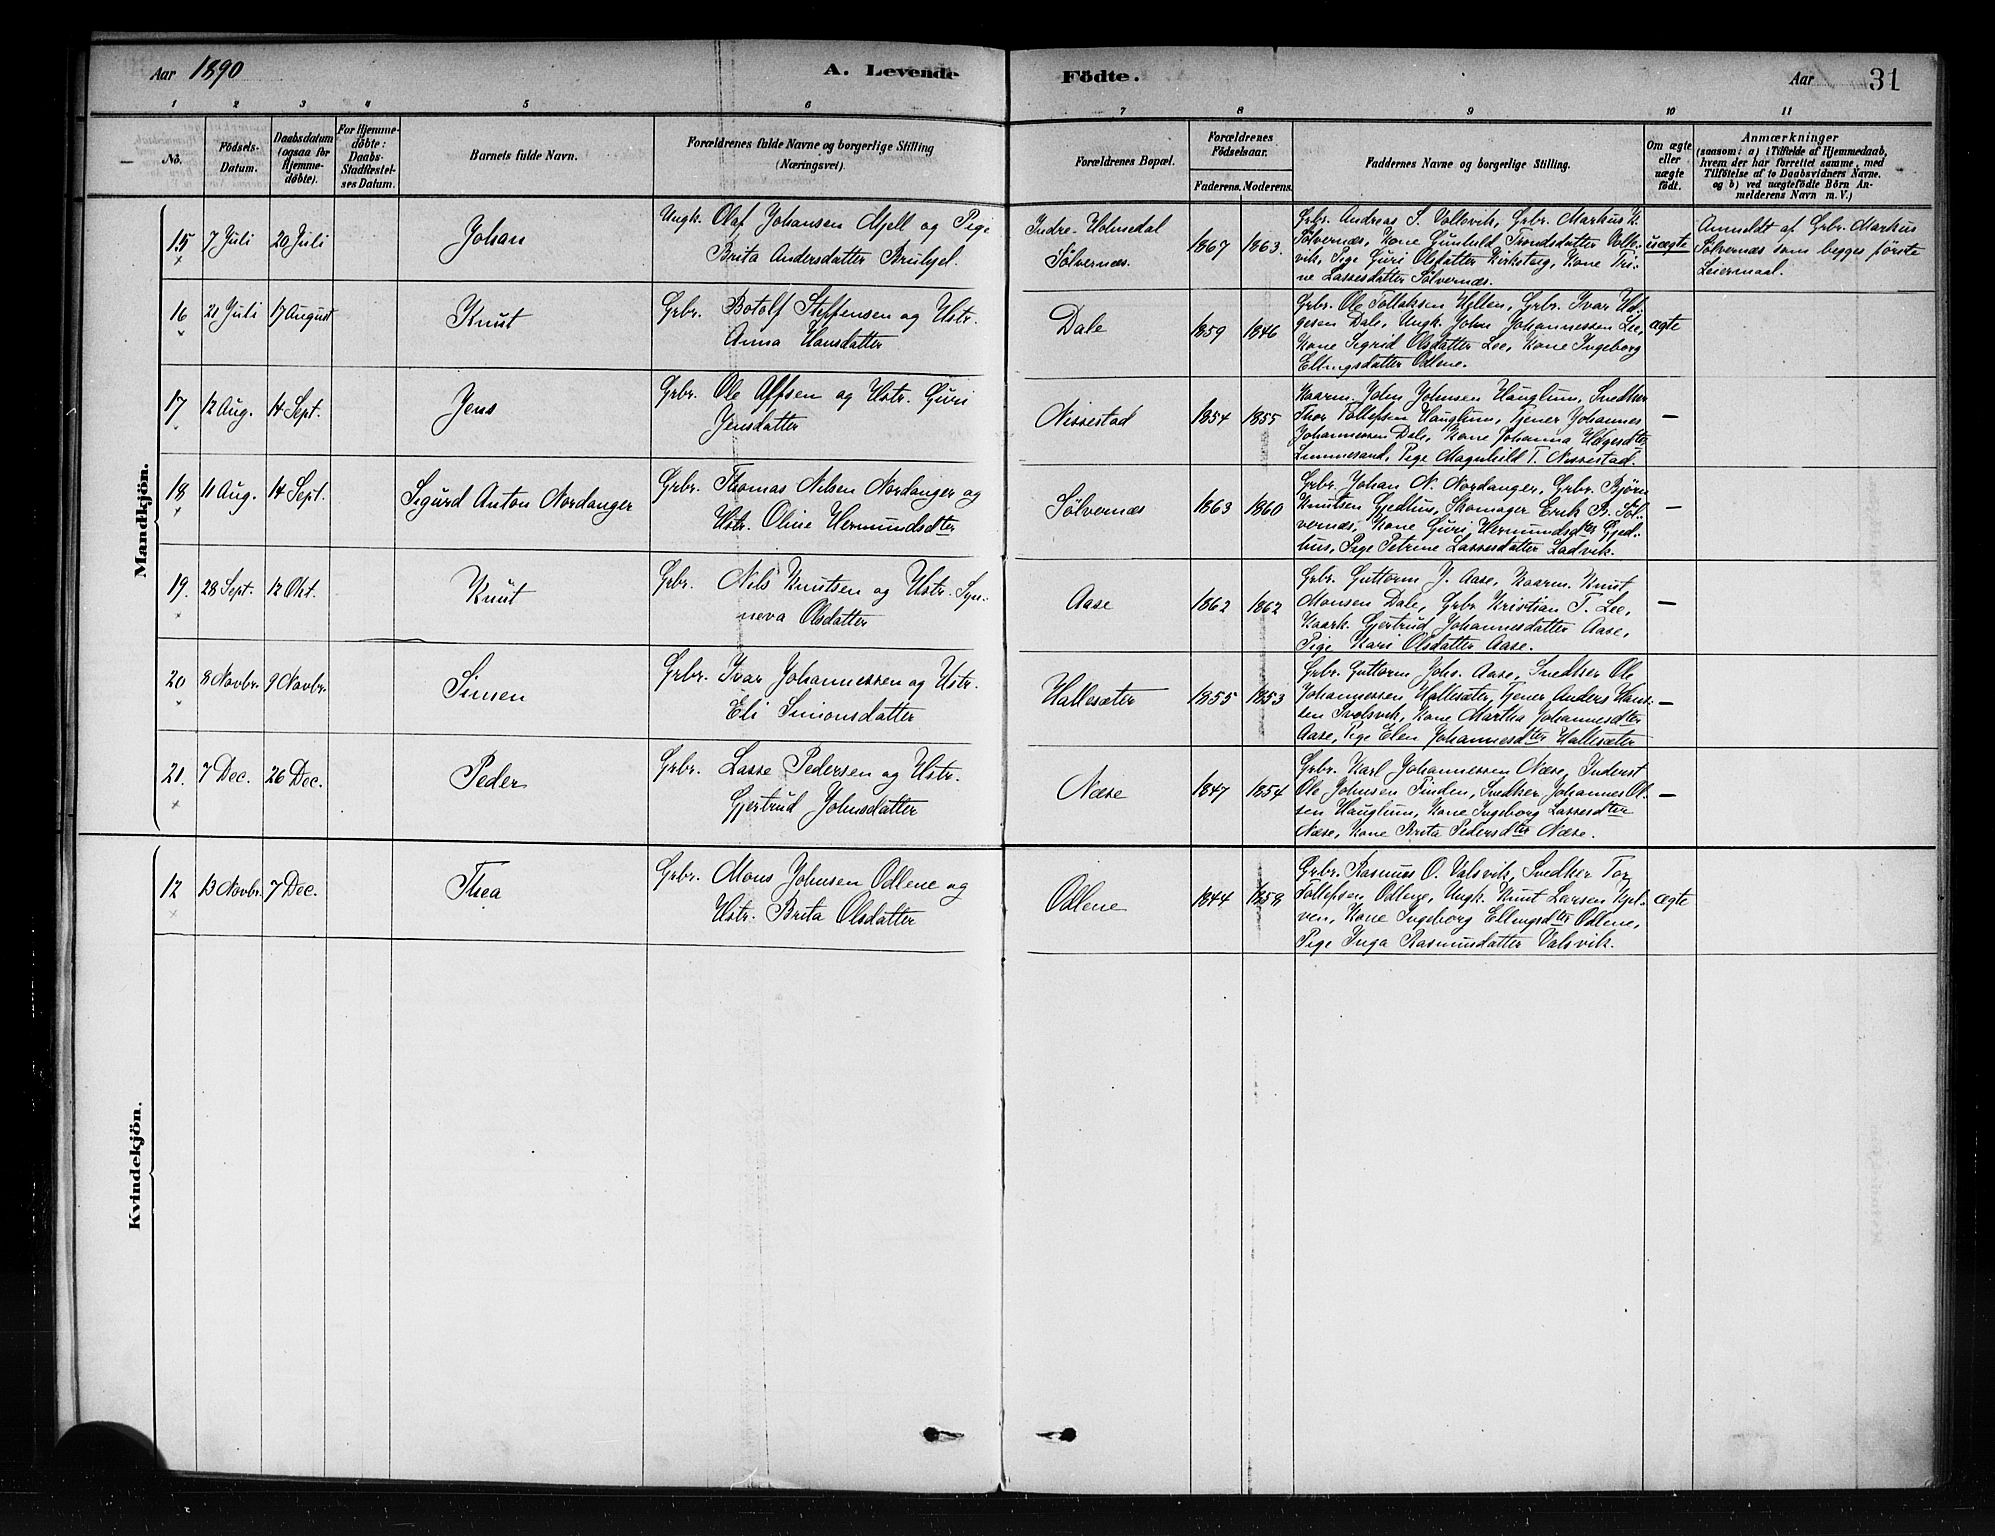 Aar 1890
A. Levende
Födte.
Aar
31
1 2 3 4 5 6 7 8 9 10 11
No.
Födsels-
Datum.
Daabsdatum
(ogsaa for
Hjemme-
døbte).
For Hjemme-
døbte:
Daabs-
Stadfæstel-
ses Datum.
Barnets fulde Navn.
Forældrenes fulde Navne og borgerlige Stilling
(Næringsvei).
Forældrenes Bopæl.
Forældrenes
Födselsaar.
Faderens. Moderens.
Faddernes Navne og borgerlige Stilling.
Om ægte
eller
uægte
födt.
Anmærkninger
(saasom: a) i Tilfælde af Hjemmedaab,
hvem der har forrettet samme, med
Tilföielse af to Daabsvidners Navne.
og b) ved uægtefödte Börn An-
melderens Navn m. V.)
Mandkjön.
15 7 Juli 20 Juli Johan
Ungk. Olaf Johansen Mjell og Pige
Brita Andersdatter Bruhjel.
Indre-Holmedal
Sølvernæs.
1867 1863.
Grbr. Andreas S. Valsvik, Grbr. Markus K.
Sølvernæs, Kone Gunhild Trondsdatter Vals-
vik, Pige Guri Olsdatter Kirkeberg, Kone Tri-
ne Lassesdatter Sølvernæs.
uægte
Anmeldt af Grbr. Markus
Sølvernæs som begges første
Leiermaal.
16 21 Juli 17 August Knut
Grbr. Botolf Steffensen og Hstr.
Anna Hansdatter
Dale
1859 1846
Grbr. Ole Tollaksen Helten, Grbr. Ivar Hel-
gesen Dale, Ungk. John Johannessen Lee,
Kone Sigrid Olsdatter Lee, Kone Ingeborg
Ellingsdatter Odlene.
ægte
17 12 Aug. 14 Sept. Jens
Grbr. Ole Alfsen og Hstr. Guri
Jensdatter
Nissestad
1854 1855
Kaarm. John Johnsen Hauglum, Snedker
Thor Tollefsen Hauglum, Tjener Johannes
Johannessen Dale, Kone Johanna Helgesdter
Limmesand, Pige Magnhild T. Nissestad.
—
18 11 Aug. 14 Sept. Sigurd Anton Nordanger
Grbr. Thomas Nilsen Nordanger og
Hstr. Oline Hermundsdter
Sølvernæs
1863 1860
Grbr. Johan N. Nordanger, Grbr. Bjørn
Knutsen Gjedhus, Skomager Erik B. Søl-
vernæs, Kone Guri Hermundsdter Gjed-
hus, Pige Petrine Lassesdatter Ladvik.
—
19. 28 Sept. 12 Okt. Knut
Grbr. Nils Knutsen og Hstr. Syn-
neva Olsdatter
Aase
1862 1862
Grbr. Guttorm J. Aase, Kaarm. Knut
Monsen Dale, Grbr. Kristian T. Lee,
Kaark. Gjertrud Johannesdatter Aase,
Pige Kari Olsdatter Aase.
—
20 8 Novbr. 9 Novbr. Simen
Grbr. Ivar Johannessen og Hstr.
Eli Simonsdatter
Hallesæter
1855 1853
Grbr. Guttorm Johs. Aase, Snedker Ole
Johannessen Hallesæter, Tjener Anders Hans-
sen Kone Martha Johannesdter
Aase, Pige Elen Johannesdter Hallesæter
—
21. 7 Dec. 26 Dec. Peder
Grbr. Lasse Pedersen og Hstr.
Gjertrud Johnsdatter
Næse
1847 1854
Grbr. Karl Johannessen Næse, Inderst
Ole Johnsen Tinden, Snedker Johannes Ol-
sen Hauglum, Kone Ingeborg Lassesdter
Næse, Kone Brita Pedersdter Næse.
—
Kvindekjön.
12 13 Novbr. 7 Dec. Thea
Grbr. Mons Johnsen Odlene og
Hstr. Brita Olsdatter
Odlene
1844 1859
Grbr. Rasmus O. Valsvik, Snedker Tor
Tollefsen Odlene, Ungk. Knut Larsen
Kone Ingeborg Ellingsdter Odlene,
Pige Inga Rasmusdatter Valsvik.
ægte